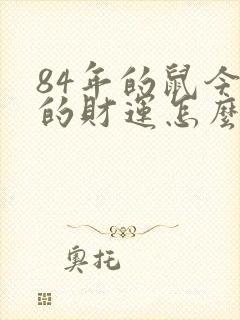 84年的鼠今
的財運怎麼
奧托